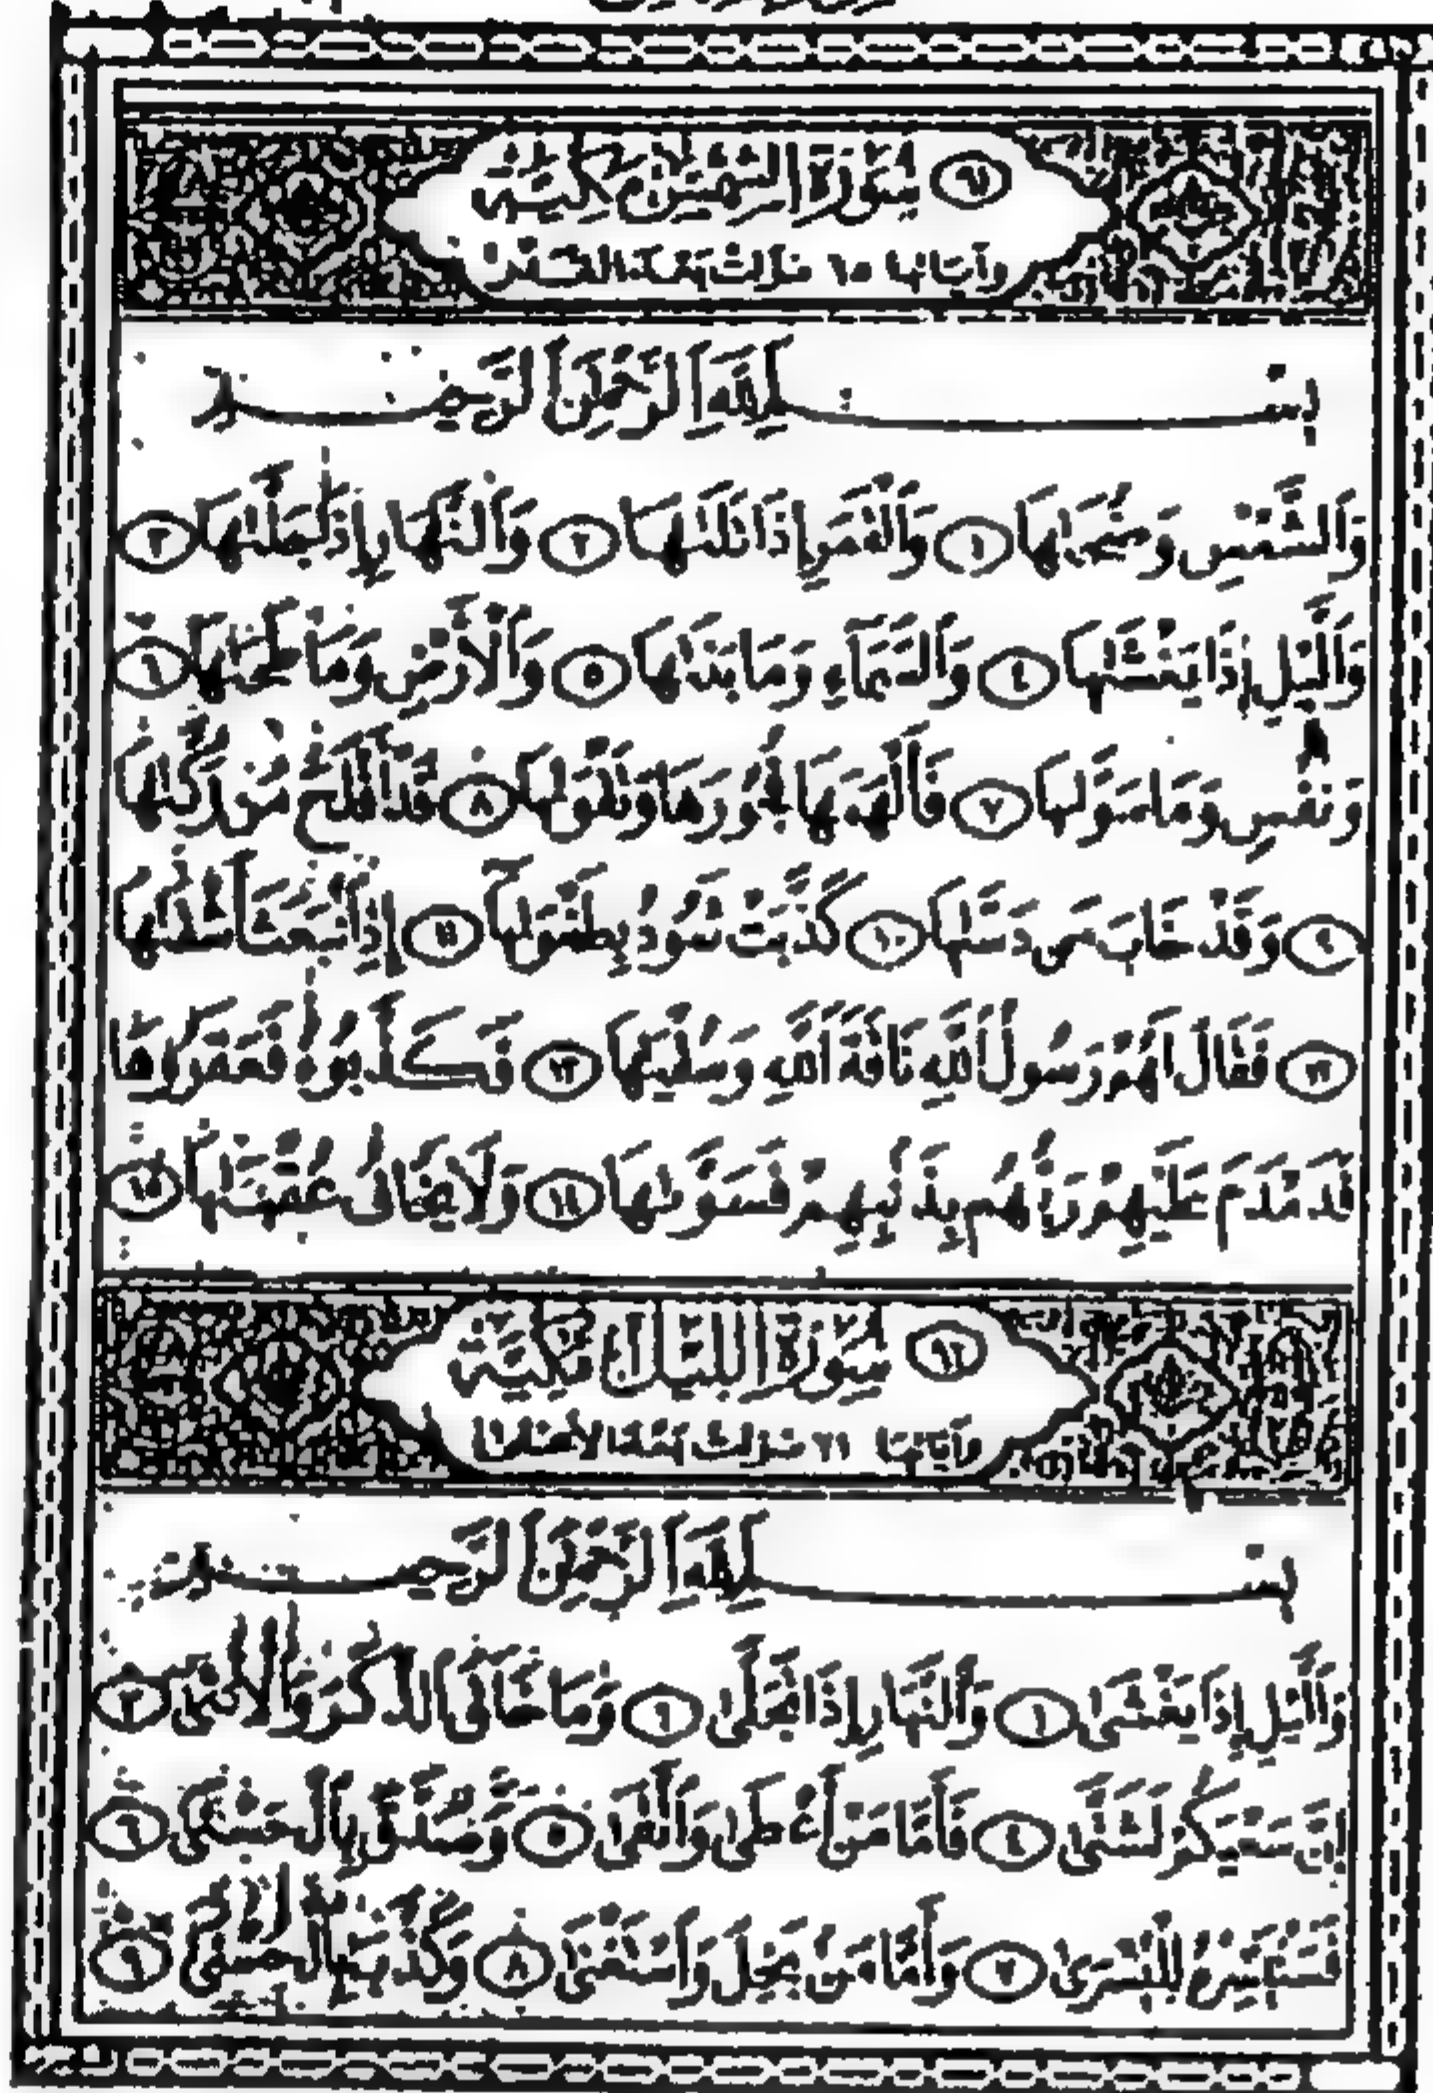 ٩١ سُورَةُ الشَّمْسِ مَكِّيَّة
وآياتها ١٥ نزلت بعد القدر
بِسْمِ ٱللَّهِ ٱلرَّحْمَٰنِ ٱلرَّحِيمِ
وَٱلشَّمْسِ وَضُحَىٰهَا ١ وَٱلْقَمَرِ إِذَا تَلَىٰهَا ٢ وَٱلنَّهَارِ إِذَا جَلَّىٰهَا ٣
وَٱلَّيْلِ إِذَا يَغْشَىٰهَا ٤ وَٱلسَّمَآءِ وَمَا بَنَىٰهَا ٥ وَٱلْأَرْضِ وَمَا طَحَىٰهَا ٦
وَنَفْسٍ وَمَا سَوَّىٰهَا ٧ فَأَلْهَمَهَا فُجُورَهَا وَتَقْوَىٰهَا ٨ قَدْ أَفْلَحَ مَن زَكَّىٰهَا
٩ وَقَدْ خَابَ مَن دَسَّىٰهَا ١٠ كَذَّبَتْ ثَمُودُ بِطَغْوَىٰهَآ ١١ إِذِ ٱنۢبَعَثَ أَشْقَىٰهَا
١٢ فَقَالَ لَهُمْ رَسُولُ ٱللَّهِ نَاقَةَ ٱللَّهِ وَسُقْيَٰهَا ١٣ فَكَذَّبُوهُ فَعَقَرُوهَا
فَدَمْدَمَ عَلَيْهِمْ رَبُّهُم بِذَنۢبِهِمْ فَسَوَّىٰهَا ١٤ وَلَا يَخَافُ عُقْبَٰهَا ١٥
٩٢ سُورَةُ اللَّيْلِ مَكِّيَّة
وآياتها ٢١ نزلت بعد الأعلى
بِسْمِ ٱللَّهِ ٱلرَّحْمَٰنِ ٱلرَّحِيمِ
وَٱلَّيْلِ إِذَا يَغْشَىٰ ١ وَٱلنَّهَارِ إِذَا تَجَلَّىٰ ٢ وَمَا خَلَقَ ٱلذَّكَرَ وَٱلْأُنثَىٰ ٣
إِنَّ سَعْيَكُمْ لَشَتَّىٰ ٤ فَأَمَّا مَنْ أَعْطَىٰ وَٱتَّقَىٰ ٥ وَصَدَّقَ بِٱلْحُسْنَىٰ ٦
فَسَنُيَسِّرُهُۥ لِلْيُسْرَىٰ ٧ وَأَمَّا مَنۢ بَخِلَ وَٱسْتَغْنَىٰ ٨ وَكَذَّبَ بِٱلْحُسْنَىٰ ٩